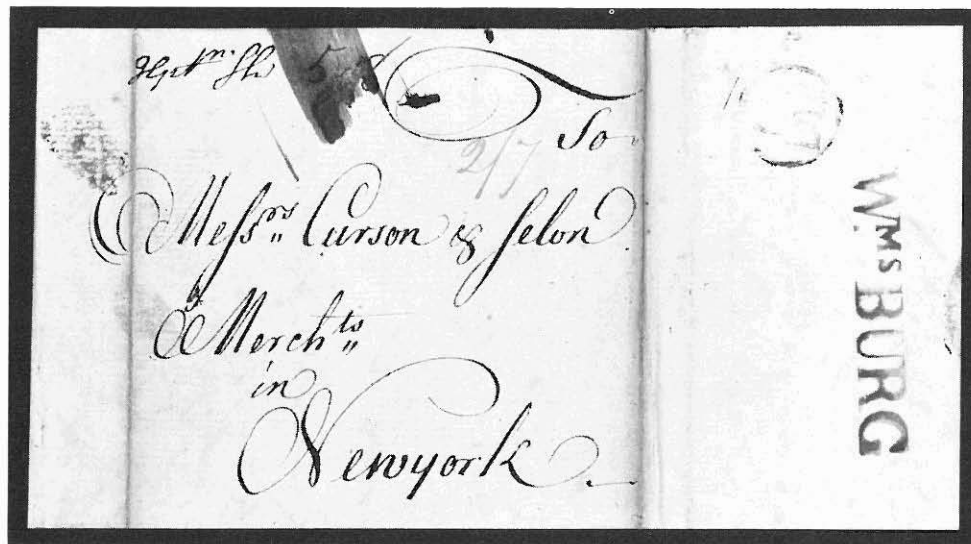 To
Messrs Curson & Selon
Merchts
in
Newyork
2/7
WMS BURG